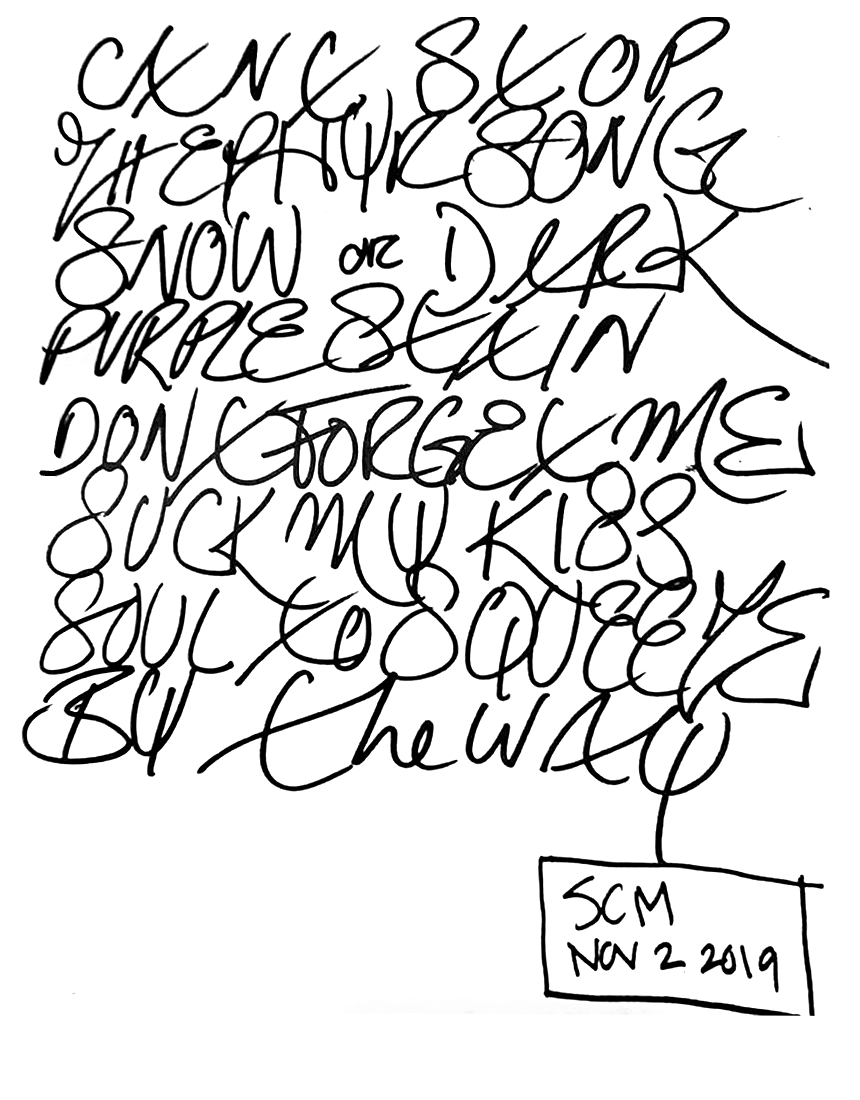 CANT STOP
ZEPHYR SONG
SNOW or DARK
PURPLE STAIN
DONT FORGET ME
SUCK MY KISS
SOUL TO SQUEEZE
BY the WAY
SCM
NOV 2 2019